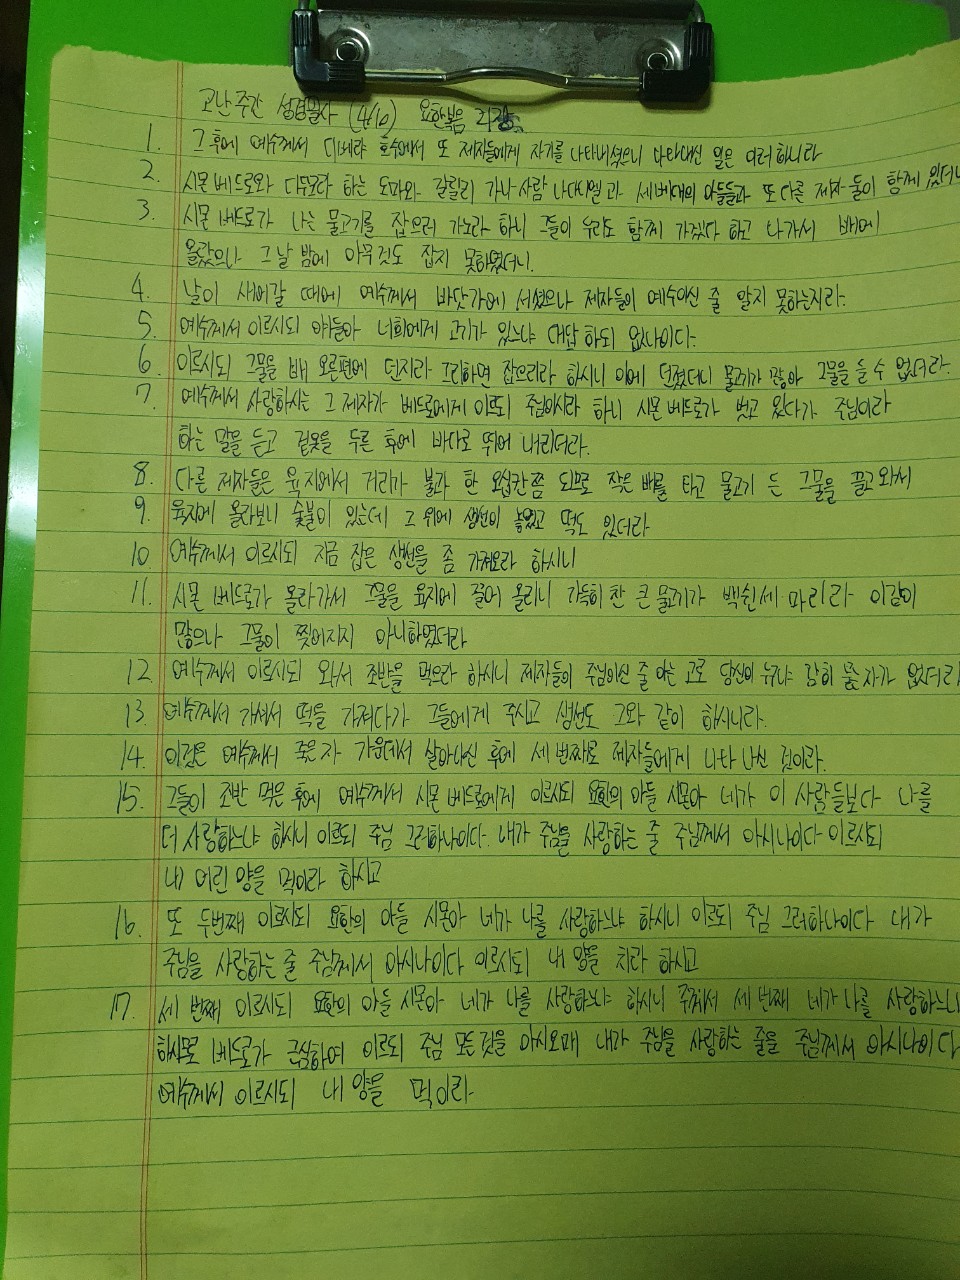 고난주간 성경필사 (4/10) 요한복음 21장
1. 그 후에 예수께서 디베랴 호수에서 또 제자들에게 자기를 나타내셨으니 나타내신 일은 이러하니라
2. 시몬 베드로와 디두모라 하는 도마와 갈릴리 가나 사람 나다나엘과 세베대의 아들들과 또 다른 제자 둘이 함께 있더니
3. 시몬 베드로가 나는 물고기를 잡으러 가노라 하니 그들이 우리도 함께 가겠다 하고 나가서 배에
올랐으나 그 날 밤에 아무것도 잡지 못하였더니.
4. 날이 새어갈 때에 예수께서 바닷가에 서셨으나 제자들이 예수이신 줄 알지 못하는지라.
5. 예수께서 이르시되 얘들아 너희에게 고기가 있느냐 대답하되 없나이다.
6. 이르시되 그물을 배 오른편에 던지라 그리하면 잡으리라 하시니 이에 던졌더니 물고기가 많아 그물을 들 수 없더라.
7. 예수께서 사랑하시는 그 제자가 베드로에게 이르되 주님이시라 하니 시몬 베드로가 벗고 있다가 주님이라
하는 말을 듣고 겉옷을 두른 후에 바다로 뛰어 내리더라.
8. 다른 제자들은 육지에서 거리가 불과 한 오십칸쯤 되므로 작은 배를 타고 물고기 든 그물을 끌고 와서
9. 육지에 올라보니 숯불이 있는데 그 위에 생선이 놓였고 떡도 있더라
10 예수께서 이르시되 지금 잡은 생선을 좀 가져오라 하시니
11. 시몬 베드로가 올라가서 그물을 육지에 끌어 올리니 가득히 찬 큰 물고기가 백쉰세 마리라 이같이
많으나 그물이 찢어지지 아니하였더라
12. 예수께서 이르시되 와서 조반을 먹으라 하시니 제자들이 주님이신 줄 아는 고로 당신이 누구냐 감히 묻는 자가 없더라
13. 예수께서 가셔서 떡을 가져다가 그들에게 주시고 생선도 그와 같이 하시니라.
14. 이것은 예수께서 죽은 자 가운데서 살아나신 후에 세 번째로 제자들에게 나타나신 것이라.
15. 그들이 조반 먹은 후에 예수께서 시몬 베드로에게 이르시되 요한의 아들 시몬아 네가 이 사람들보다 나를
더 사랑하느냐 하시니 이르되 주님 그러하나이다. 내가 주님을 사랑하는 줄 주님께서 아시나이다 이르시되
내 어린 양을 먹이라 하시고
16. 또 두번째 이르시되 요한의 아들 시몬아 네가 나를 사랑하느냐 하시니 이르되 주님 그러하나이다 내가
주님을 사랑하는 줄 주님께서 아시나이다 이르시되 내 양을 치라 하시고
17. 세 번째 이르시되 요한의 아들 시몬아 네가 나를 사랑하느냐 하시니 주께서 세 번째 네가 나를 사랑하느냐
하시므로 베드로가 근심하여 이르되 주님 모든 것을 아시오매 내가 주님을 사랑하는 줄을 주님께서 아시나이다
예수께서 이르시되 내 양을 먹이라